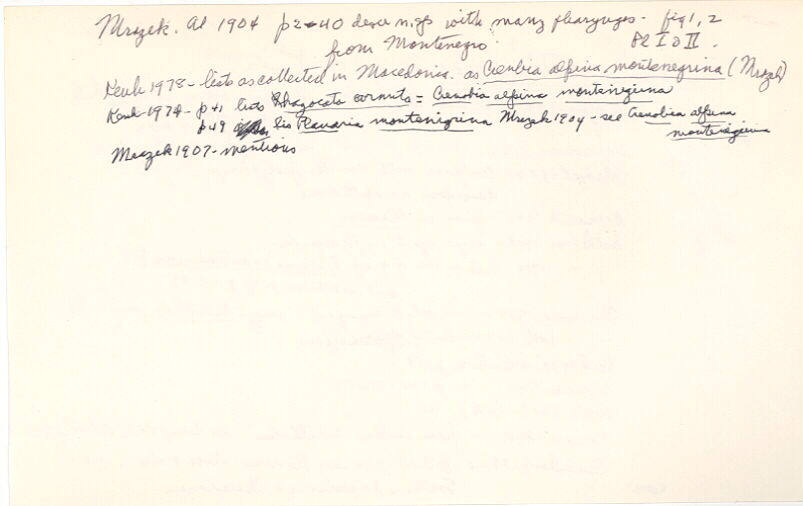 Mrazek. Al 1904 p 2-40 descr n.sp with many pharynges - fig 1, 2
from Montenegro. Pl I & II.
Kenk 1978 - lists as collected in Macedonia. as Crenobia alpina montenegrina (Mrazek)
Kenk 1974 - p 41 lists Phagocata cornuta = Crenobia alpina montenigrina
p 49 lis Planaria montenigrina Mrazek 1904 - see Crenobia alpina
montenegrina
Mrazek 1907 - mentions